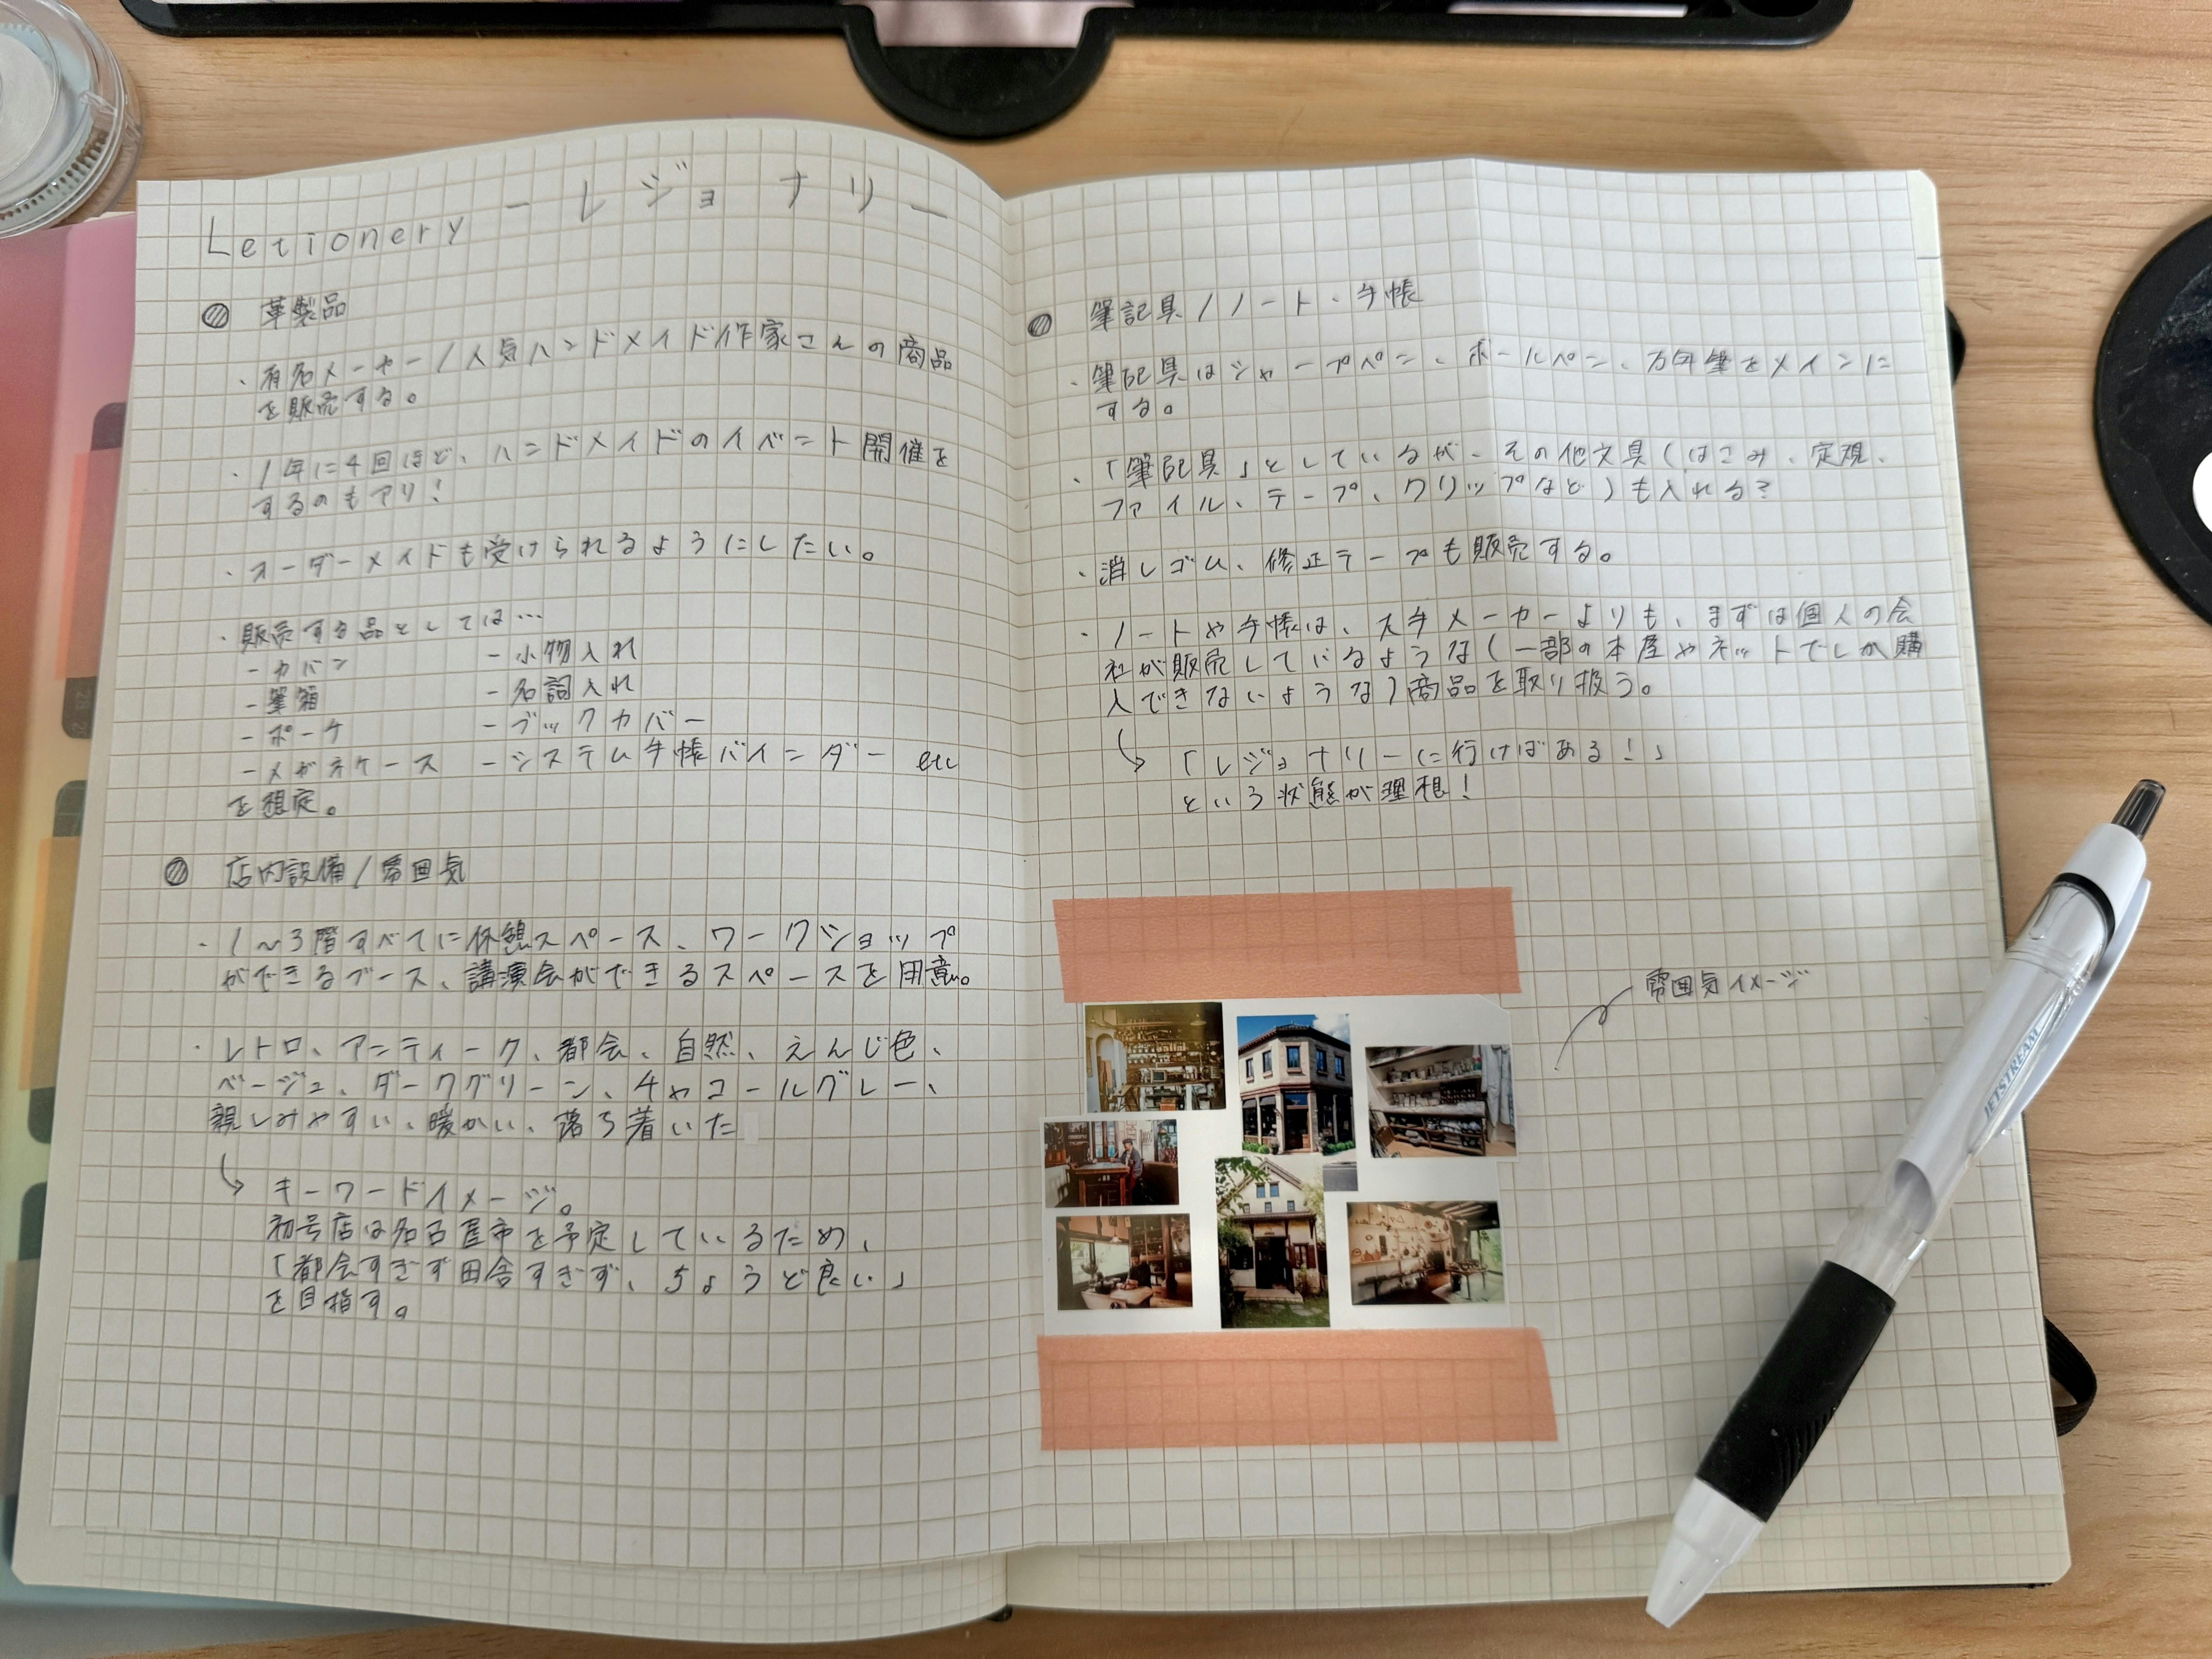 Letionery - レジョナリー
革製品
・有名メーカー/人気ハンドメイド作家さんの商品
を販売する。
・1年に4回ほど、ハンドメイドのイベント開催を
するのもアリ!
・オーダーメイドも受けられるようにしたい。
・販売する品としては…
-カバン -小物入れ
-筆箱 -名詞入れ
-ポーチ -ブックカバー
-メガネケース -システム手帳バインダー etc
を想定。
店内設備/雰囲気
・1~3階すべてに休憩スペース、ワークショップ
ができるブース、講演会ができるスペースを用意。
・レトロ、アンティーク、都会、自然、えんじ色、
ベージュ、ダークグリーン、チャコールグレー、
親しみやすい、暖かい、落ち着いた
↳ キーワードイメージ。
初号店は名古屋市を予定しているため、
「都会すぎず田舎すぎず、ちょうど良い」
を目指す。
筆記具/ノート・手帳
・筆記具はシャープペン、ボールペン、万年筆をメインに
する。
・「筆記具」としているが、その他文具(はさみ、定規、
ファイル、テープ、クリップなど)も入れる?
・消しゴム、修正テープも販売する。
・ノートや手帳は、大手メーカーよりも、まずは個人の会
社が販売しているような(一部の本屋やネットでしか購
入できないような)商品を取り扱う。
↳ 「レジョナリーに行けばある!」
という状態が理想!
雰囲気イメージ
JETSTREAM